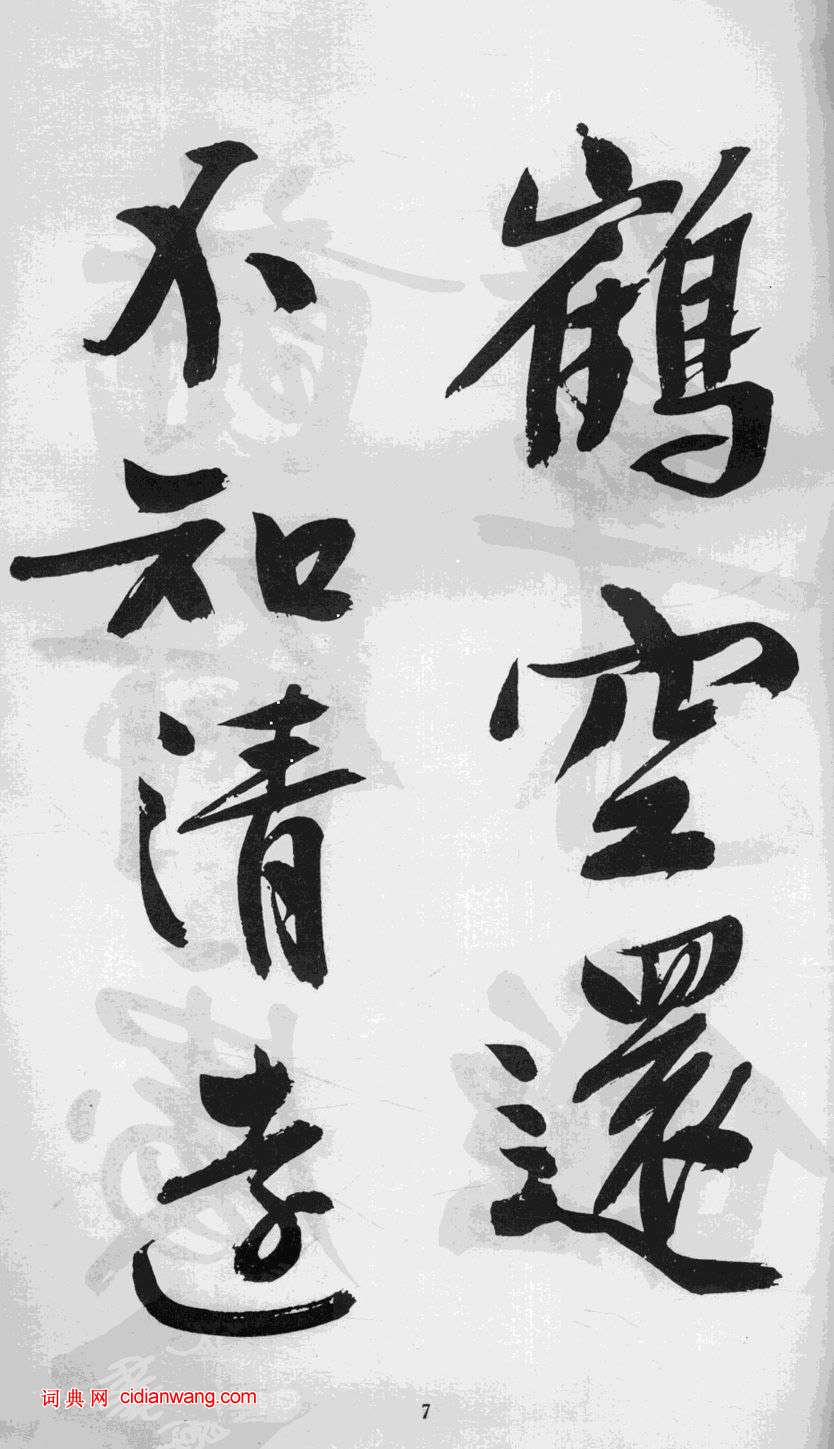 鶴空還
不知清遠
词典网 cidianwang.com
7